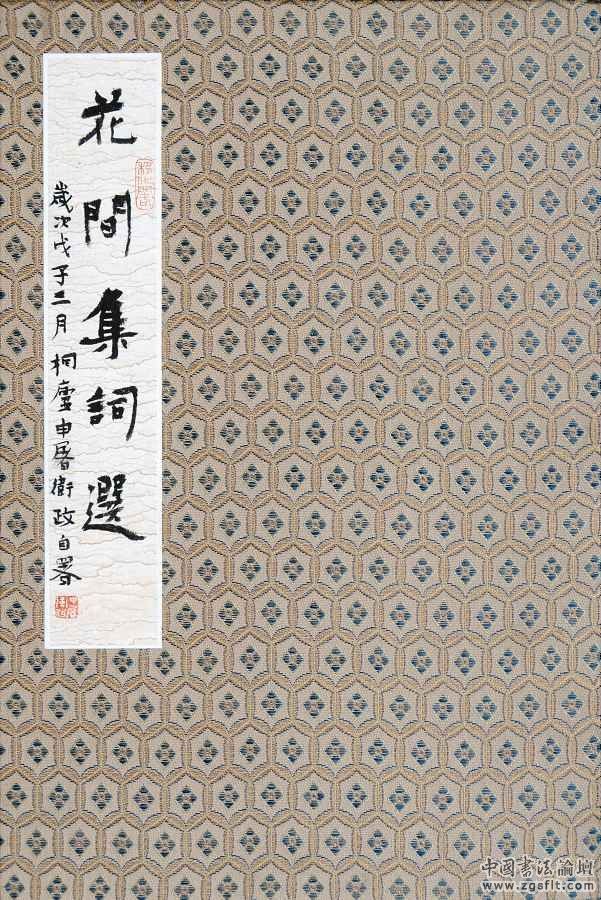 花間集詞選
歲次戊子三月桐廬申屠衛政自署
中国书法論壇
www.zgsflt.com